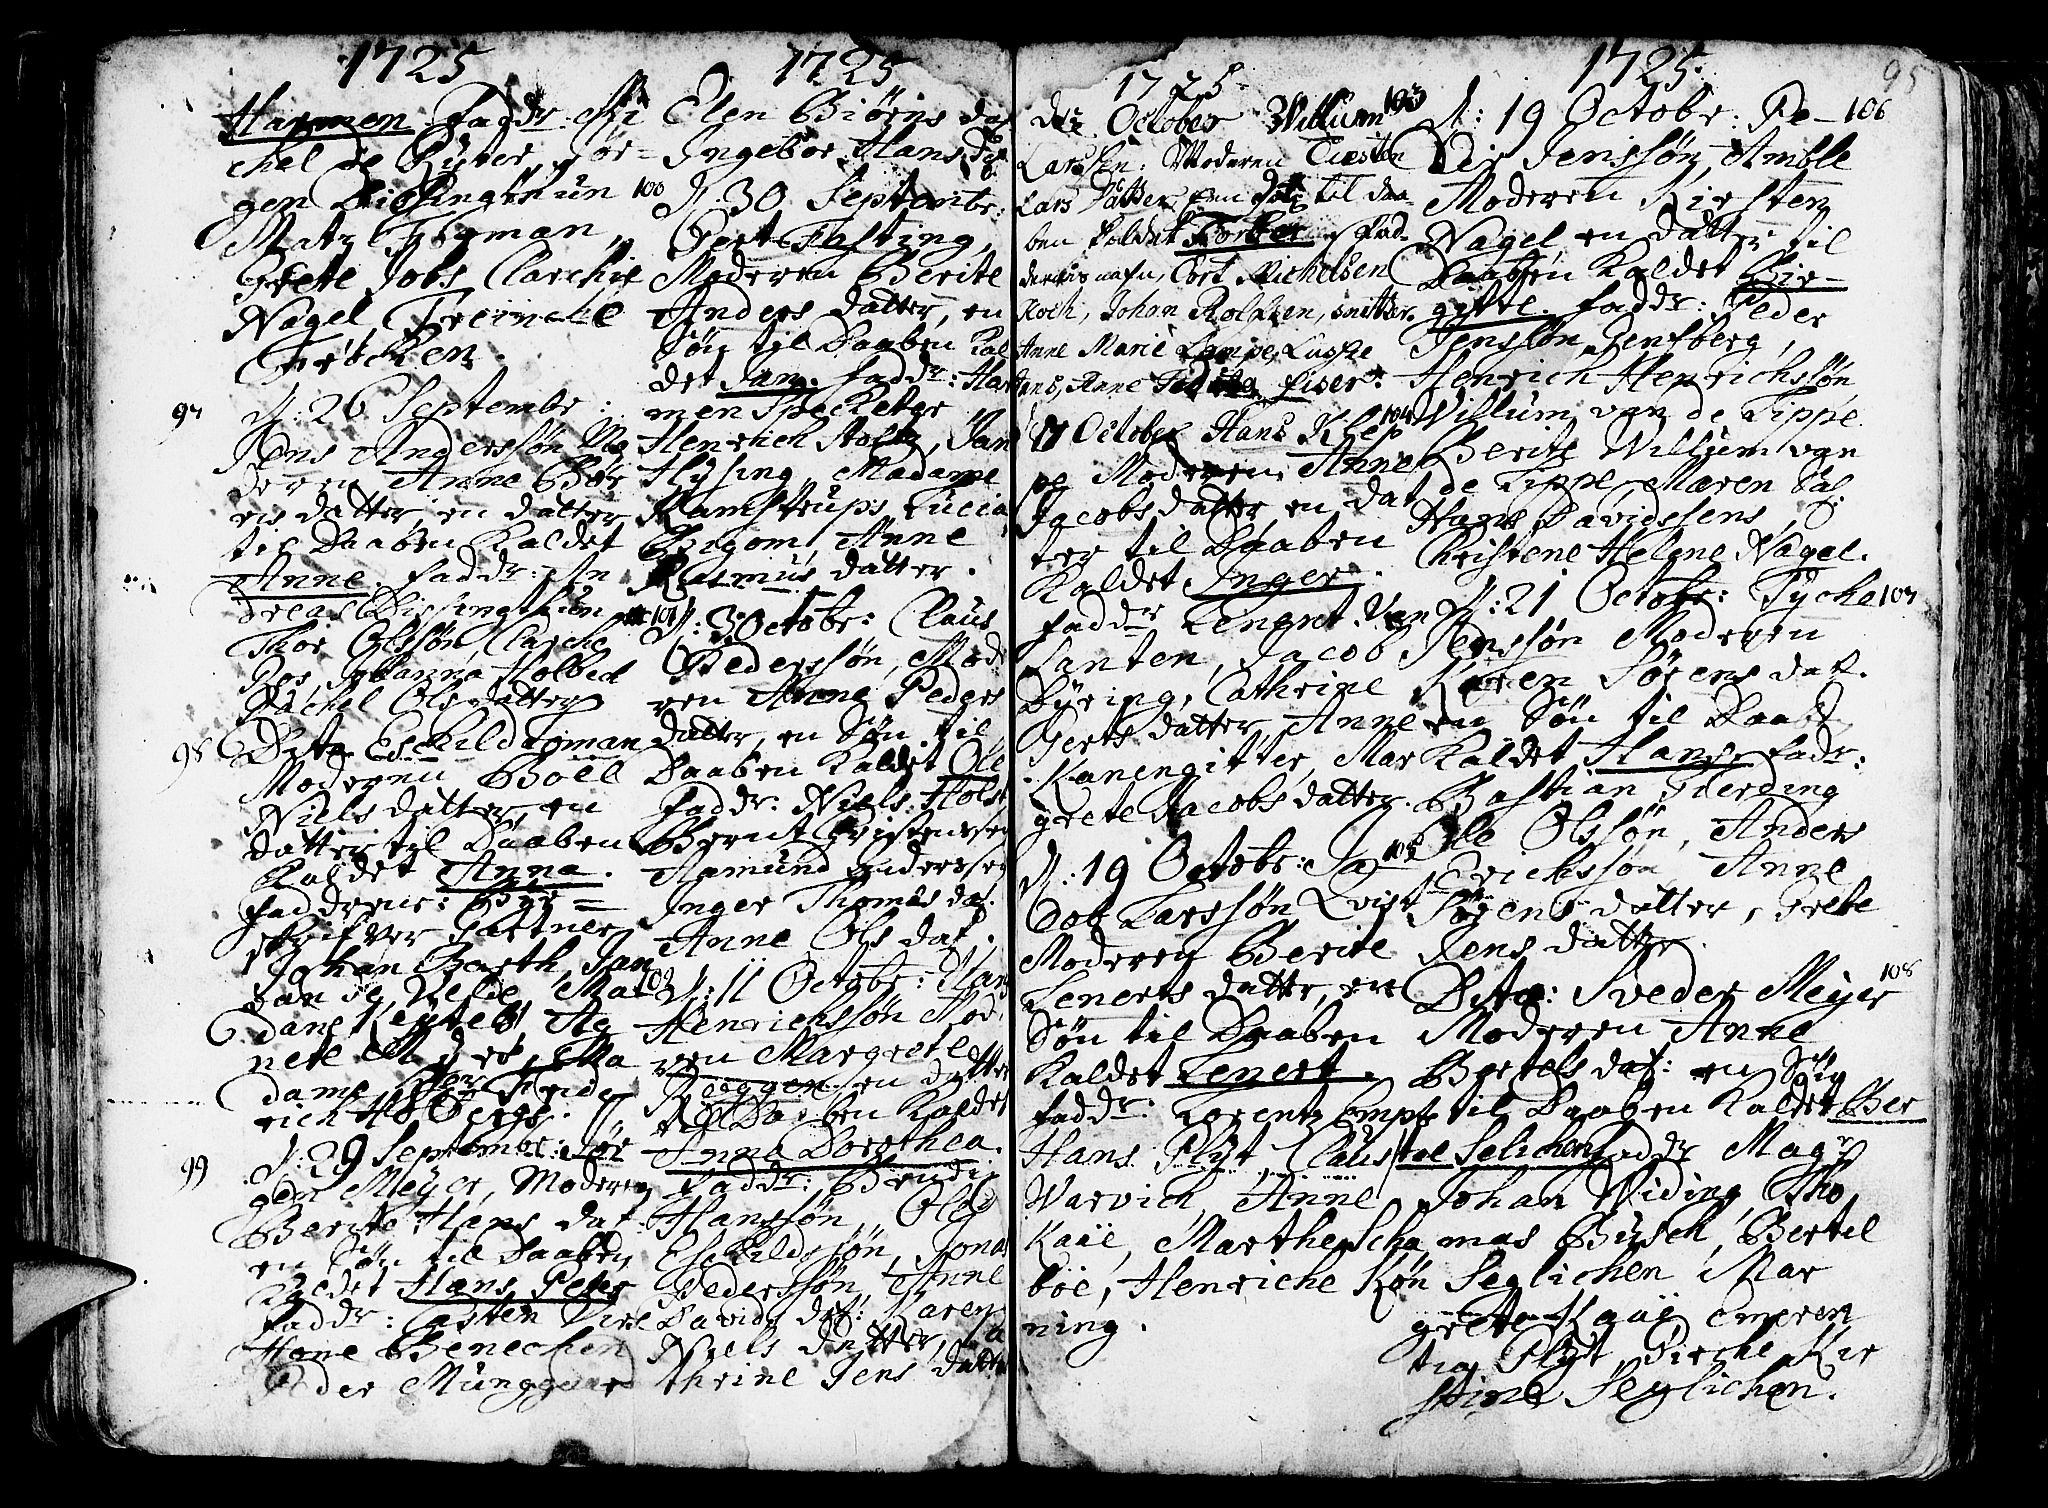 1725
Harmen Faddr: Mi
chel de Ryter, Jør=
gen Dissingthun
Matz Figman,
Grete Jobs Clarchie
Nagel, Freinche
Frøcken.
97
d: 26 Septembr:
Jens Anderssøn Mo
deren Anne Bør
ris datter, en datter
til Daaben Kaldet
Anne. Faddr: An
dreas Dissingthun
Thor Olssøn Clarche
Bos Johanna Holbech
Rachel Olsdatter
98
Dito Eschild Toman
Moderen Boel
Niels datter, en
datter til Daaben
Kaldet Anna.
Faddrene: Bye=
skrifver Gartner
Johan Barth, Jan
dan de Velde, Ma
dame Keptels, Ag
nete Meyers, Ma
dame Sr Fride
rich Holbergs.
99
d: 29 Septembr: Jør
gen Meyer, Moderen
Berite Hans dat.
en Søn til Daaben
Kaldet Hans Peter
Faddr: Casten Dirk
Hane Benechen
Peder Munggaard
1725
Elen Biørns dat
Ingebor Hans dat
100
d. 30 Septembr:
Gert Fasting,
Moderen Berite
Anders datter, en
Søn til Daaben Kal
det Jan. Faddr: Har
men Speckeboe,
Henrich Stoltz, Jan
Hysing, Madame
Ramstrups, Lucia
Bigom, Anne
Rasmus datter.
101
d: 3 Octobr: Claus
Pederssøn, Mod
ren Anne Peders
datter, en Søn til
Daaben Kaldet Ole
Faddr: Niels Holst
Bernt Christenssen
Aamund Anderssen
Inger Thomas dat.
Anne Ols dat.
102
d: 11 Octobr: Hans
Henrichssøn Mod
ren Margrete
Røggen en datter
til Daaben Kaldet
Anna Dorothea.
Faddr: Bendix
Hanssøn, Ole
Eschildssøn, Jonas
Pederssøn, Anne
Davids dat: Maren
Niels datter, Ca
thrine Jens datter
1725
October Willum 103
Larssen. Moderen Cirsten
Lars datter, en til daa
ben kaldet Torber Fad
dernis nafn, Cort Michelsen
Koch, Johan Rolfsen, snitker.
Anne Marie Lampe, Lucke
Jens, Anne fiser.
17 October Hans Klep 104
pe Moderen Anne
Jacobs datter en dat
ter til Daaben
Kaldet Inger.
Faddr Lengret. Van
Santen, Jacob
Dyring, Cathrine
Gerts datter, Anne
Kanengitter, Mar
grete Jacobs datter.
d: 19 Octobr: Ja 105
cob Larssøn Qvist
Moderen Berite
Lenerts datter, en
Søn til Daaben
Kaldet Lenert.
Faddr: Lorentz Compf
Hans Plyt Claus
Warvich, Anne
Kaie, Marthe Scha
bøe, Henriche Køn
ning.
1725.
95
d: 19 Octobr: Pe- 106
der Jenssøn Amble
Moderen Kirsten
Nagel, en datter til
Daaben Kaldet Bir-
gitte. Faddr: Peder
Jenssøn Jenfberg,
Henrich Henrichssøn
Willum van de Lippe
Berite Willum van
de Lippe, Maren Sal:
Hans Davidssens,
Christene Helene Nagel.
d: 21 Octobr: Tyche 107
Jenssøn Moderen
Karen Sørens dat.
en Søn til Daab
Kaldet Hans. Fadr:
Bastian Fierding
Ole Olssøn, Anders
Erichssøn, Anne
Sørens datter, Grete
Jens datter.
Dito: Sveder Meyer 108
Moderen Anne
Bertels dat: en Søn
til Daaben Kaldet Ber
tel Selichen Faddr Magr
Johan Widing, Tho
mas Bysch, Bertil
Seglichen Mar
grete Kaii Emeren
tia Plyt Dirche Kir
stine Seglichen.